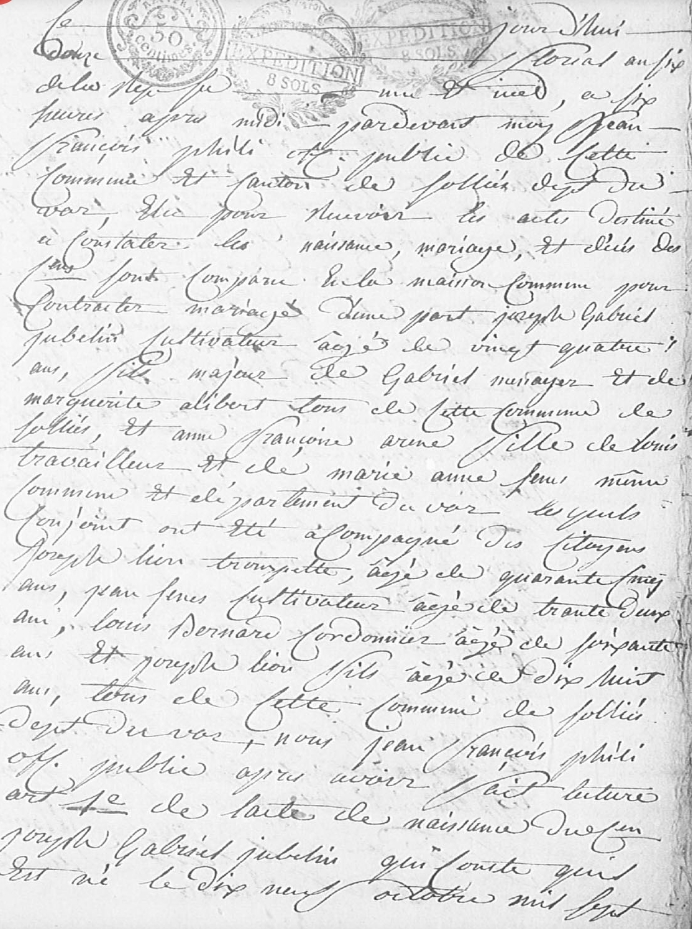 Ce jour d'hui
50
Centimes
EXPEDITION
8 SOLS
EXPEDITION
8 SOLS
douze floreal an six
de la rep. fse une et ind, a six
heures apres midi pardevant moy jean
françois phili off. public de cette
Commune et canton de solliés dept du
var, Elu pour recevoir les actes destiné
a Constater les naissance, mariage, et décés des
Cens sont Comparu En la maison Commune pour
Contracter mariage d'une part joseph Gabriel
jubelin Cultivateur âgé de vingt quatre
ans, fils majeur de Gabriel menager et de
marguerite alibert tous de cette Commune de
solliés, et anne françoise arene fille de louis
travailleur et de marie anne senes même
Commune et département du var lesquels
Conjoint ont été acompagné des Citoyens
joseph lion trompette, âgé de quarante cinq
ans, jean senes Cultivateur âgé de trante deux
ans, louis Bernard Cordonnier âgé de soixante
ans et joseph lion fils âgé de dix huit
ans, tous de cette Commune de solliés
dept du var, nous jean françois phili
off. public apres avoir fait lecture
art 1e de l'acte de naissance du Cen
joseph Gabriel jubelin qui Conste qu'il
Est né le dix neuf octobre mil sept